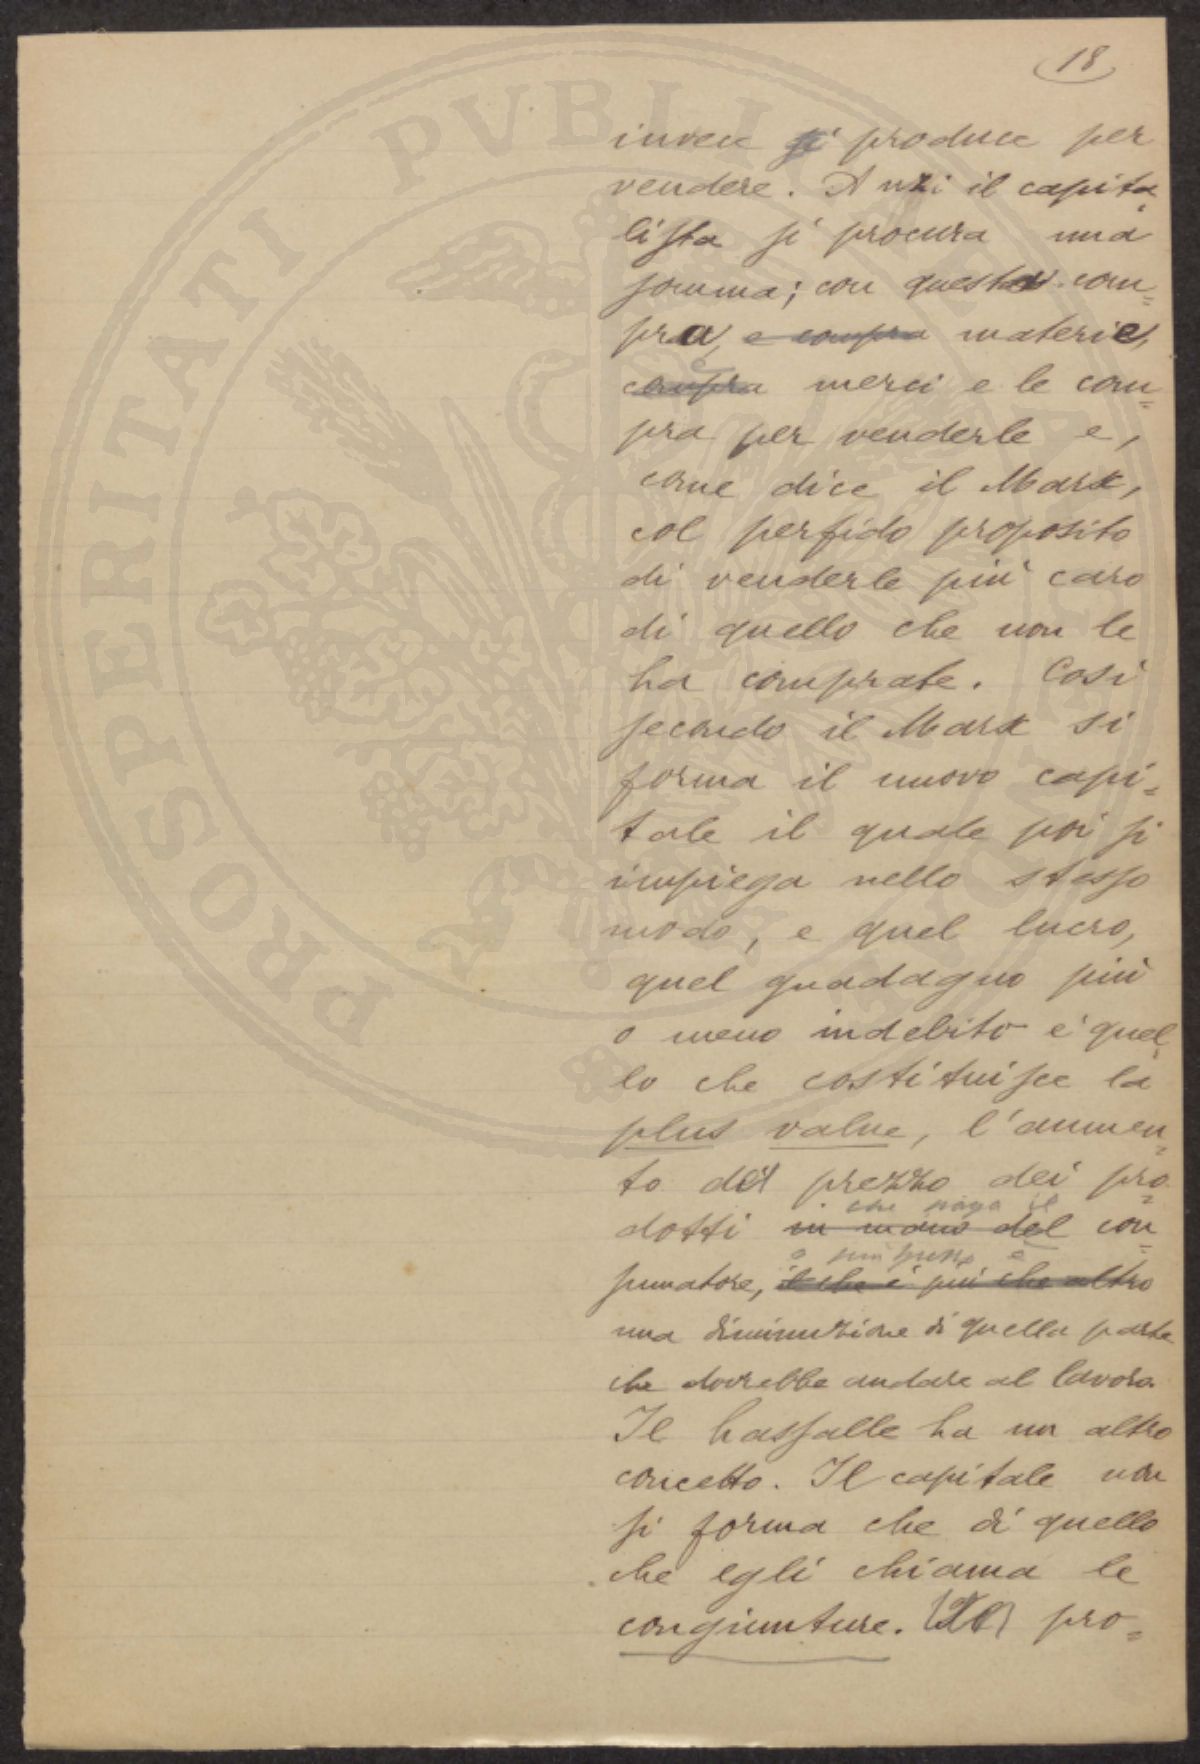 18
invece si produce per
vendere. Anzi il capita
lista si procura una
somma; con questa com=
pra, e compra materie,
compra merci e le com=
pra per venderle e,
come dice il Marx,
col perfido proposito
di venderle più caro
di quello che non le
ha comprate. Così
secondo il Marx si
forma il nuovo capi=
tale il quale poi si
impiega nello stesso
modo, e quel lucro,
quel guadagno più
o meno indebito è quel=
lo che costituisce la
plus value, l'aumen=
to del prezzo dei pro=
che paga il
dotti in mano del con=
o più spesso è
sumatore, il che è più che altro
una diminuzione di quella parte
che dovrebbe andare al lavoro.
Il Lassalle ha un altro
concetto. Il capitale non
si forma che di quello
che egli chiama le
congiunture. pro=
PROSPERITATI PVBLICAE